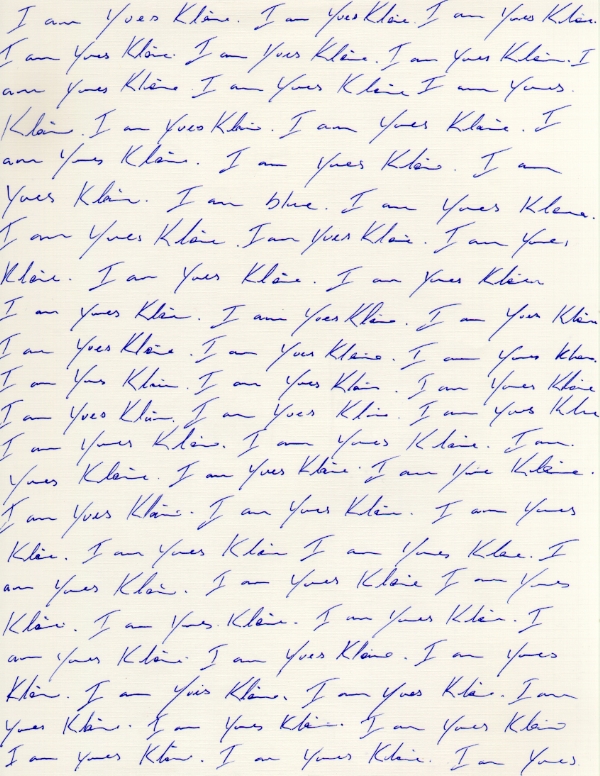 I am Yves Klein. I am Yves Klein. I am Yves Klein.
I am Yves Klein. I am Yves Klein. I am Yves Klein. I
am Yves Klein. I am Yves Klein I am Yves
Klein. I am Yves Klein. I am Yves Klein. I
am Yves Klein. I am Yves Klein. I am
Yves Klein. I am blue. I am Yves Klein.
I am Yves Klein. I am Yves Klein. I am Yves
Klein. I am Yves Klein. I am Yves Klein
I am Yves Klein. I am Yves Klein. I am Yves Klein
I am Yves Klein. I am Yves Klein. I am Yves Klein.
I am Yves Klein. I am Yves Klein. I am Yves Klein
I am Yves Klein. I am Yves Klein. I am Yves Klein
I am Yves Klein. I am Yves Klein. I am
Yves Klein. I am Yves Klein. I am Yves Klein.
I am Yves Klein. I am Yves Klein. I am Yves
Klein. I am Yves Klein I am Yves Klein. I
am Yves Klein. I am Yves Klein I am Yves
Klein. I am Yves Klein. I am Yves Klein. I
am Yves Klein. I am Yves Klein. I am Yves
Klein. I am Yves Klein. I am Yves Klein. I am
Yves Klein. I am Yves Klein. I am Yves Klein
I am Yves Klein. I am Yves Klein. I am Yves